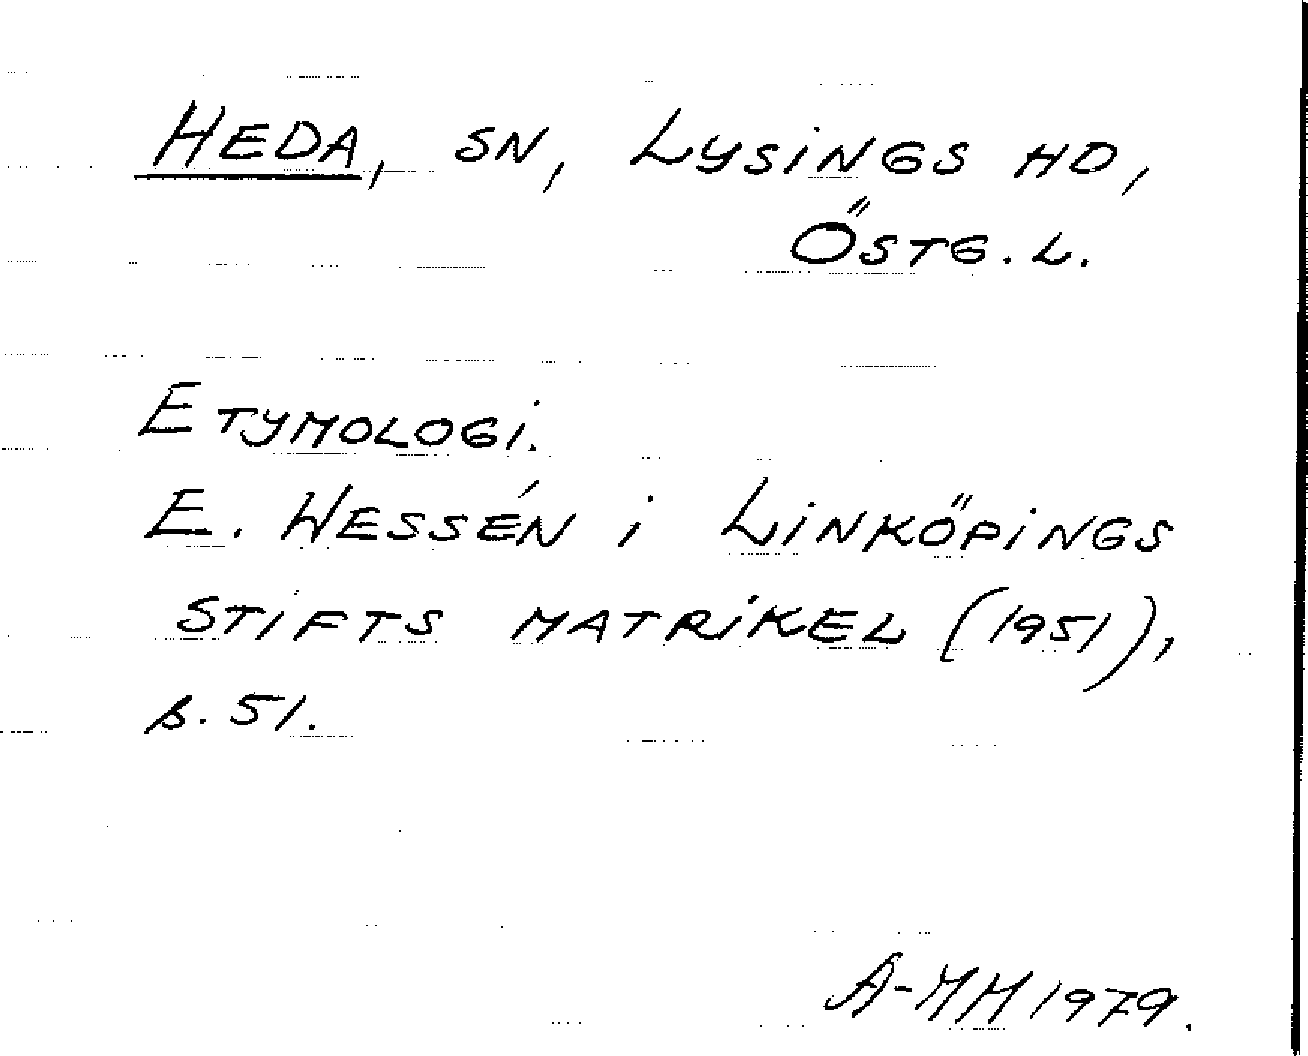 HEDA, SN, LYSINGS HD,
ÖSTG. L.
ETYMOLOGI.
E. WESSÉN i LINKÖPINGS
STIFTS MATRIKEL (1951),
s. 51.
A-MH 1979.